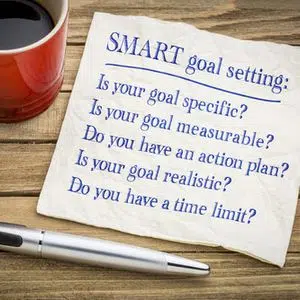 SMART goal setting:
Is your goal specific?
Is your goal measurable?
Do you have an action plan?
Is your goal realistic?
Do you have a time limit?